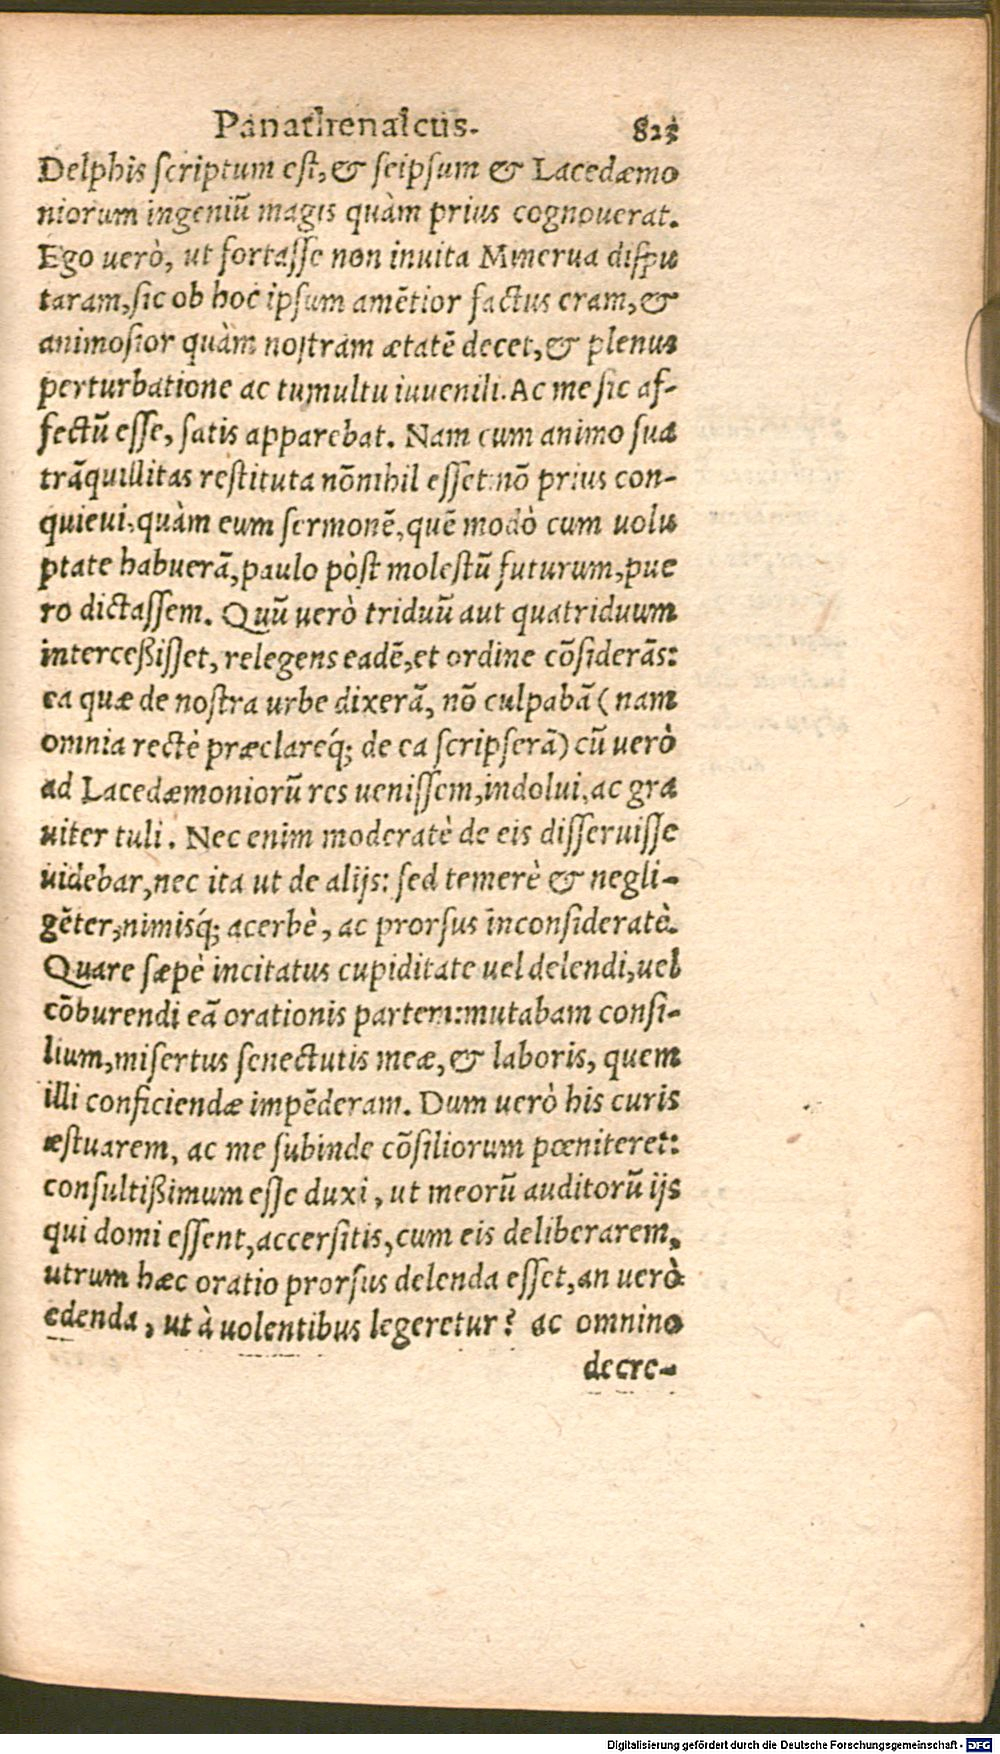 Panathenaicus. 823
Delphis scriptum est, & seipsum & Lacedæmo
niorum ingeniũ magis quàm prius cognouerat.
Ego uerò, ut fortasse non inuita Minerua dispu
taram, sic ob hoc ipsum amẽtior factus eram, &
animosior quàm nostram ætatẽ decet, & plenus
perturbatione ac tumultu iuuenili. Ac me sic af-
fectũ esse, satis apparebat. Nam cum animo sua
trãquillitas restituta nõnihil esset: nõ prius con-
quieui, quàm eum sermonẽ, quẽ modò cum uolu
ptate habuerã, paulo pòst molestũ futurum, pue
ro dictassem. Quũ uerò triduũ aut quatriduum
interceßisset, relegens eadẽ, et ordine cõsiderãs:
ea quæ de nostra urbe dixerã, nõ culpabã (nam
omnia rectè præclareq́; de ea scripserã) cũ uerò
ad Lacedæmoniorũ res uenissem, indolui, ac gra
uiter tuli. Nec enim moderatè de eis disseruisse
uidebar, nec ita ut de alijs: sed temerè & negli-
gẽter, nimisq́; acerbè, ac prorsus inconsideratè.
Quare sæpè incitatus cupiditate uel delendi, uel
cõburendi eã orationis partem: mutabam consi-
lium, misertus senectutis meæ, & laboris, quem
illi conficiendæ impẽderam. Dum uerò his curis
æstuarem, ac me subinde cõsiliorum pœniteret:
consultißimum esse duxi, ut meorũ auditorũ ijs
qui domi essent, accersitis, cum eis deliberarem,
utrum hæc oratio prorsus delenda esset, an uerò
edenda, ut à uolentibus legeretur? ac omnino
decre-
Digitalisierung gefördert durch die Deutsche Forschungsgemeinschaft - DFG